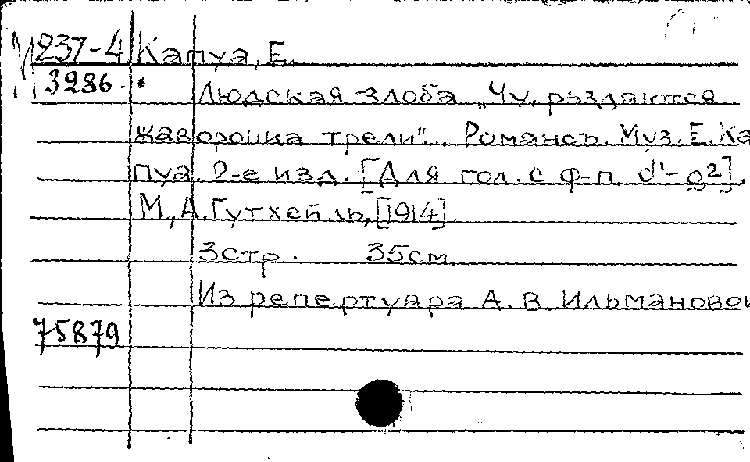 М 237-4 Капуа, Е.
3286
Людская злоба „Чу, раздаются
жаворонка трели".. Романсъ. Муз. Е. Ка
пуа. 2-е изд. [Для гол. с ф-п. d'-g²].
М., А. Гутхейль, [1914]
3 стр. 35 см.
Из репертуара А. В. Ильмановой
75879